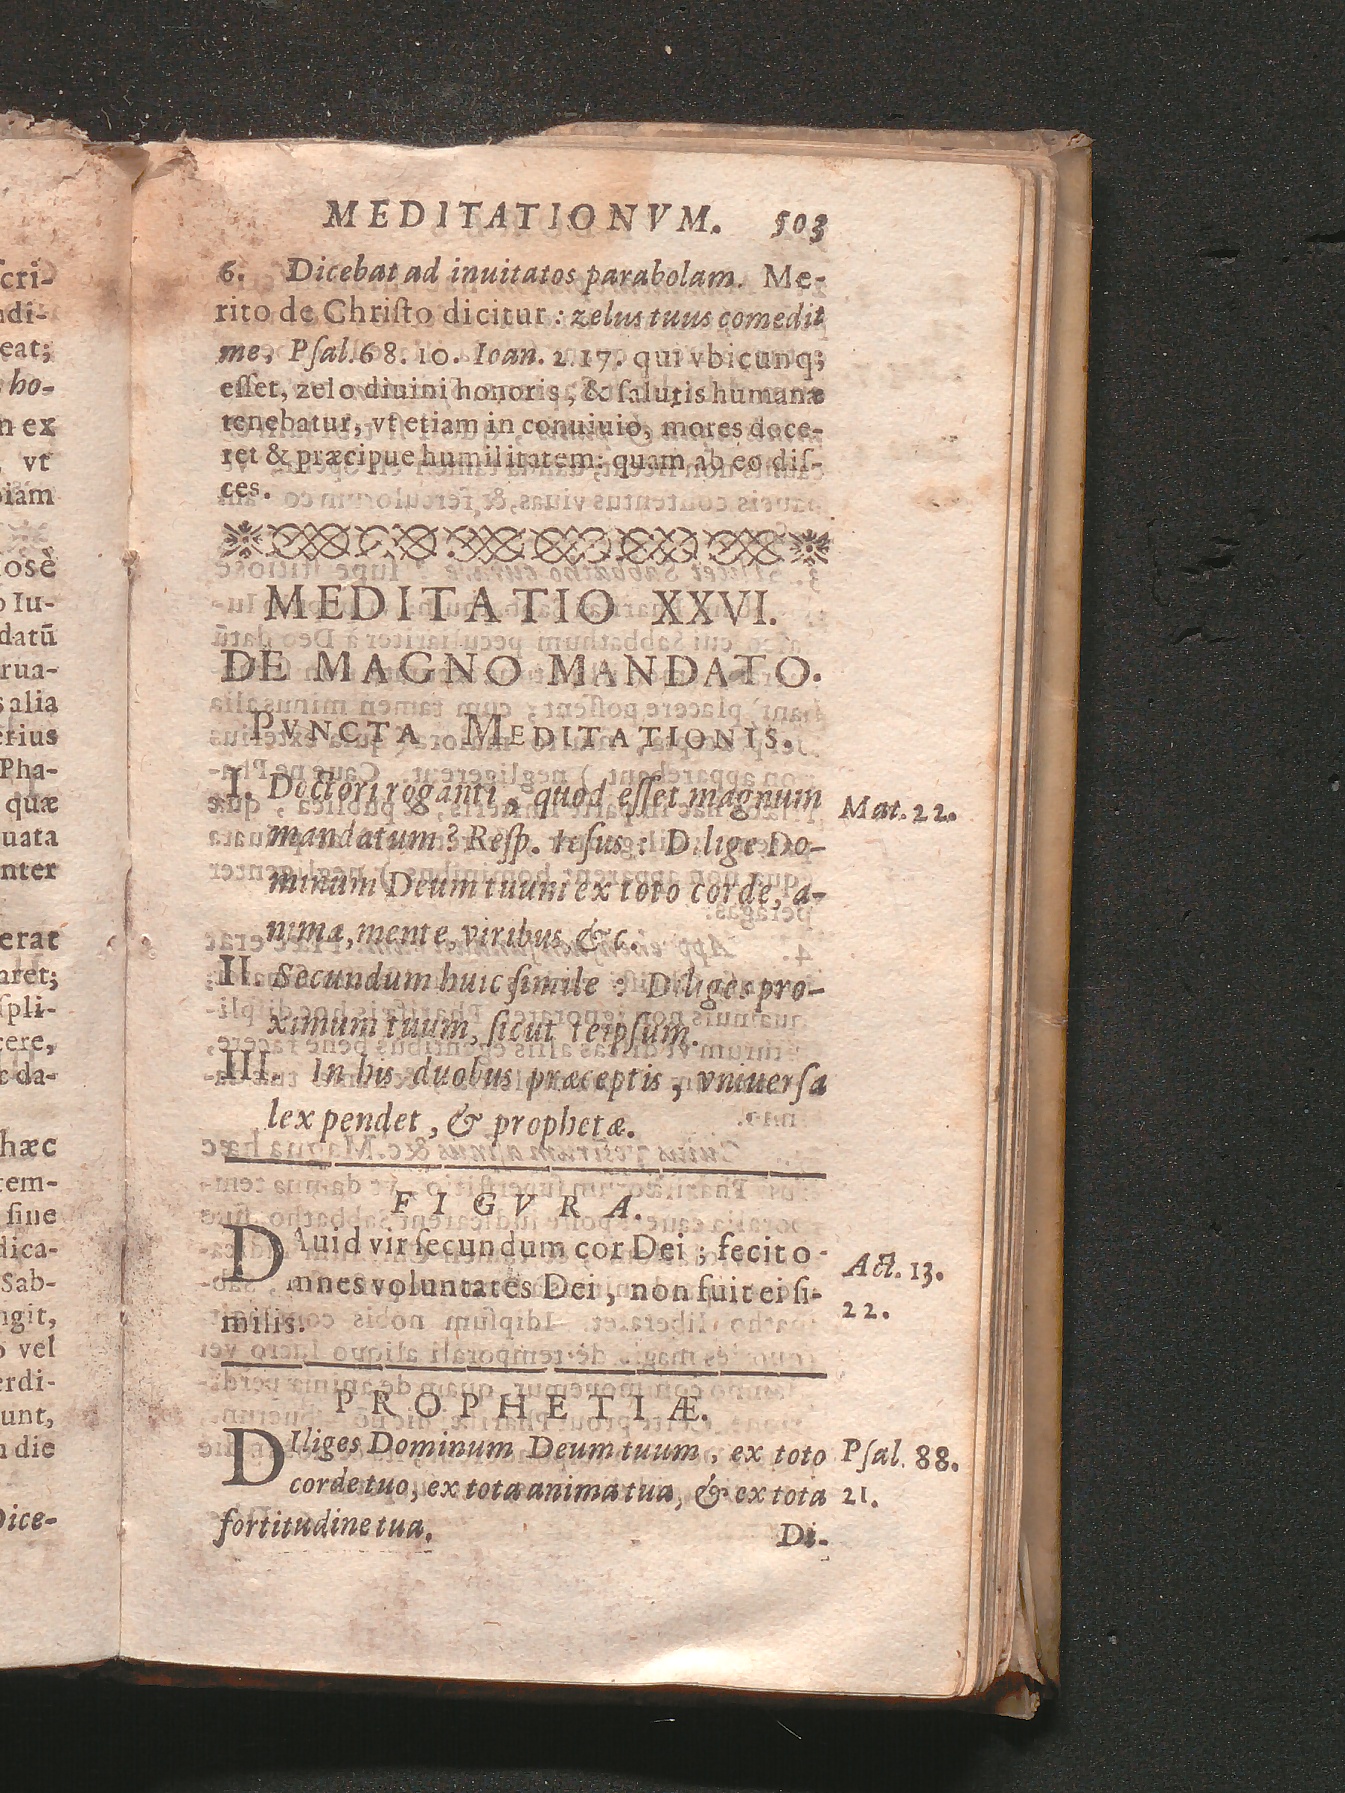 MEDITATIONVM. 503
6. Dicebat ad inuitatos parabolam. Me-
rito de Chriſto dicitur: zelus tuus comedit
me, Pſal. 68. 10. Ioan. 2. 17. qui vbicunq;
eſſet, zelo diuini honoris, & ſalutis humanæ
tenebatur, vt etiam in conuiuio, mores doce-
ret & præcipue humilitatem: quam ab eo diſ-
ces.
MEDITATIO XXVI.
DE MAGNO MANDATO.
PVNCTA MEDITATIONIS.
I. Doctori roganti, quod eſſet magnum
Mat. 22.
mandatum? Reſp. Ieſus: Dilige Do-
minum Deum tuum ex toto corde, a-
nima, mente, viribus &c.
II. Secundum huic ſimile: Diliges pro-
ximum tuum, ſicut teipſum.
III. In his duobus præceptis, vniuerſa
lex pendet, & prophetæ.
FIGVRA.
DAuid vir ſecundum cor Dei; fecit o-
mnes voluntates Dei, non fuit ei ſi-
milis.
Act. 13.
22.
PROPHETIÆ.
DIliges Dominum Deum tuum, ex toto
corde tuo, ex tota anima tua, & ex tota
fortitudine tua.
Pſal. 88.
21.
Di-
ſcri-
ndi-
eat;
ho-
n ex
vt
piam
ioſè
o Iu-
datū
rua-
s alia
erius
Pha-
quæ
uata
nter
erat
aret;
ſpli-
cere,
c da-
hæc
tem-
ſiue
dica-
Sab-
ngit,
o vel
erdi-
unt,
n die
Dice-